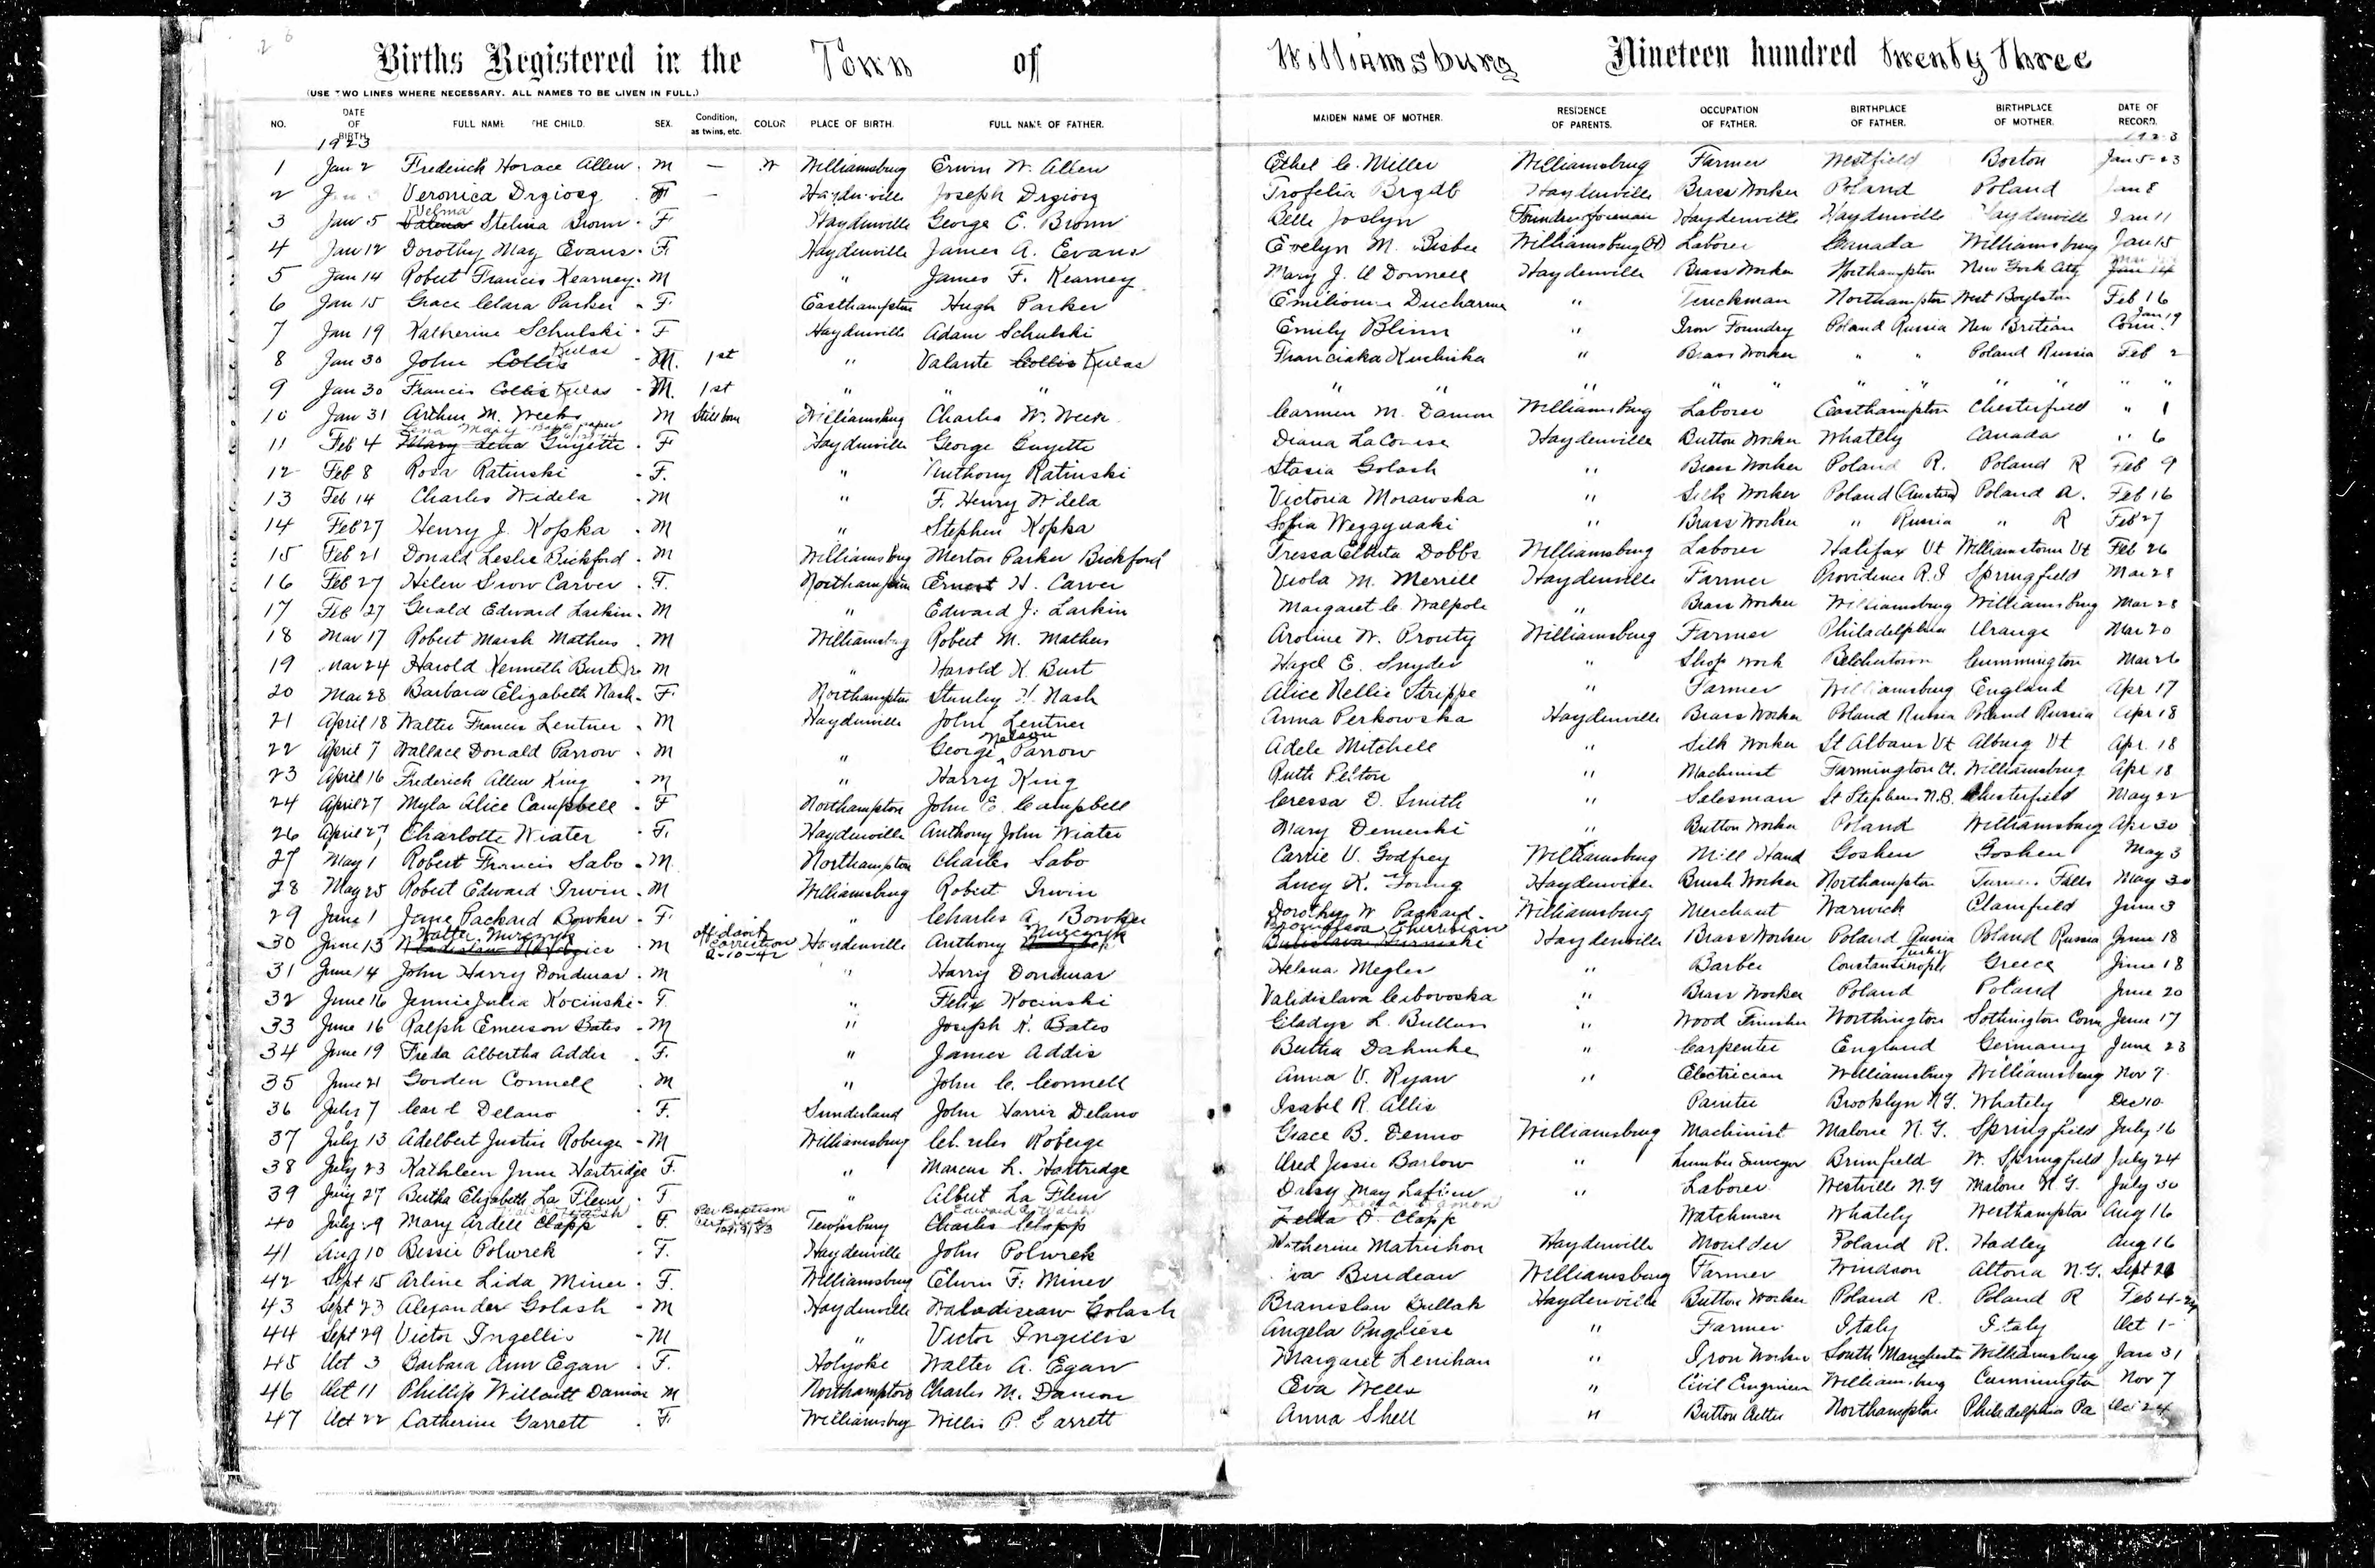 26
Births Registered in the Town of Williamsburg Nineteen hundred twenty three
(USE TWO LINES WHERE NECESSARY. ALL NAMES TO BE GIVEN IN FULL.)
NO. DATE OF BIRTH FULL NAME THE CHILD. SEX. Condition, as twins, etc. COLOR PLACE OF BIRTH. FULL NAME OF FATHER. MAIDEN NAME OF MOTHER. RESIDENCE OF PARENTS. OCCUPATION OF FATHER. BIRTHPLACE OF FATHER. BIRTHPLACE OF MOTHER. DATE OF RECORD.
1923 1923
1 Jan 2 Frederick Horace Allen M — W Williamsburg Erwin W. Allen Ethel C. Miller Williamsburg Farmer Westfield Boston Jan 5-23
2 Veronica Drgiosg F — Haydenville Joseph Drgiosg Haydenville Brass Worker Poland Poland Jan 8
3 Jan 5 Velma Stelina Brown F Haydenville George E. Brown Belle Joslyn Foundry foreman Haydenville Haydenville Haydenville Jan 11
4 Jan 12 Dorothy May Evans F Haydenville James A. Evans Evelyn M. Bisbee Williamsburg (H) Laborer Canada Williamsburg Jan 15
5 Jan 14 Robert Francis Kearney M " James F. Kearney Mary J. O Donnell Haydenville Brass Worker Northampton New York City
6 Jan 15 Grace Clara Parker F. Easthampton Hugh Parker Ducharme " Truckman Northampton West Boylston Feb 16
7 Jan 19 Katherine Schulski F Haydenville Adam Schulski Emily Blinn " Iron Foundry Poland Russia New Britian Conn. Jan 19
8 Jan 30 John Collis Kulas M. 1st " Valante Collis Kulas Franciska Kuchiska " Brass Worker " " Poland Russia Feb 2
9 Jan 30 Francis Collis Kulas M. 1st " " " " " " " " " " " " " "
10 Jan 31 Arthur M. Weeks M Still born Williamsburg Charles W. Week Carmen M. Damon Williamsburg Laborer Easthampton Chesterfield " 1
Lena Mary
11 Feb 4 Mary Lena Guyette F Haydenville George Guyette Diana LaCourse Haydenville Button Worker Whately Canada " 6
12 Feb 8 Rosa Ratinski F. " Anthony Ratinski Stasia Golash " Brass Worker Poland R. Poland R Feb 9
13 Feb 14 Charles Widela M " F. Henry Widela Victoria Morawska " Silk Worker Poland (Austria) Poland A. Feb 16
14 Feb 27 Henry J. Kopka M " Stephen Kopka Sofia " Brass Worker " Russia " R Feb 27
15 Feb 21 Donald Leslie Bickford M Williamsburg Merton Parker Bickford Tressa Elberta Dobbs Williamsburg Laborer Halifax Vt Williamstown Vt Feb 26
16 Feb 27 Helen Snow Carver F. Northampton Ernest H. Carver Viola M. Merrill Haydenville Farmer Providence R.I Springfield Mar 28
17 Feb 27 Gerald Edward Larkin M " Edward J. Larkin Margaret C. Walpole " Brass Worker Williamsburg Williamsburg Mar 28
18 Mar 17 Robert Marsh Mathers M Williamsburg Robert M. Mathers Aroline W. Prouty Williamsburg Farmer Philadelphia Orange Mar 20
19 Mar 24 Harold Kenneth Burt Jr M " Harold K. Burt Hazel E. Snyder " Shop work Belchertown Cummington Mar 26
20 Mar 28 Barbara Elizabeth Nash F. Northampton Stanley H. Nash Alice Nellie Strippe " Farmer Williamsburg England Apr 17
21 April 18 Walter Francis Lentner M Haydenville John Lentner Anna Perkowska Haydenville Brass Worker Poland Russia Poland Russia Apr 18
22 April 7 Wallace Donald Parrow M " George Nelson Parrow Adele Mitchell " Silk Worker St Albans Vt Alburg Vt Apr. 18
23 April 16 Frederick Allen King M " Harry King Ruth Pelton " Machinist Farmington Ct. Williamsburg Apr 18
24 April 27 Myla Alice Campbell F Northampton John E. Campbell Caressa D. Smith " Salesman St Stephens N.B. Chesterfield May 22
26 April 27 Charlotte Wiater F. Haydenville Anthony John Wiater Mary Demerski " Button Worker Poland Williamsburg Apr 30
27 May 1 Robert Francis Sabo M. Northampton Charles Sabo Carrie V. Godfrey Williamsburg Mill Hand Goshen Goshen May 3
28 May 25 Robert Edward Irwin M Williamsburg Robert Irwin Lucy K. Young Haydenville Brush Worker Northampton Turners Falls May 30
29 June 1 Jane Packard Bowker F. " Charles A. Bowker Dorothy W Packard Williamsburg Merchant Warwick Plainfield June 3
30 June 13 Walter Murczyk M affidavit correction 2-10-42 Haydenville Anthony Murczyk Haydenville Brass Worker Poland Russia Poland Russia June 18
31 June 14 John Harry Dondunas M " Harry Dondunas Helena Megles " Barber Constantinople Turkey Greece June 18
32 June 16 Jennie Julia Kocinski F. " Felix Kocinski Validislava Cubovoska " Brass Worker Poland Poland June 20
33 June 16 Ralph Emerson Bates M " Joseph K. Bates Gladys L. Bullens " Wood Finisher Worthington Sothington Conn June 17
34 June 19 Freda Albertha Addis F. " James Addis Bertha Dahmke " Carpenter England Germany June 23
35 June 21 Gorden Connell M " John C. Connell Anna V. Ryan " Electrician Williamsburg Williamsburg Nov 7
36 July 7 Delano F. Sunderland John Harris Delano Isabel R. Allis Painter Brooklyn N.Y. Whately Dec 10
37 July 13 Adelbert Justin Roberge M Williamsburg Charles Roberge Grace B. Denno Williamsburg Machinist Malone N.Y. Springfield July 16
38 July 23 Kathleen June Hartridge F. " Marcus L. Hartridge Jessie Barlow " Lumber Surveyor Brimfield W. Springfield July 24
39 July 27 Bertha Elizabeth La Fleur F " Albert La Fleur Daisy May " Laborer Westville N.Y Malone N.Y. July 30
40 July 9 Mary Ardell Clapp F. Per Baptism Tewksbury Charles Clapp Edward Walsh Zella D. Clapp Watchman Whately Westhampton Aug 16
41 Aug 10 Bessie Polwrek F. Haydenville John Polwrek Katherine Matrishon Haydenville Moulder Poland R. Hadley Aug 16
42 Sept 15 Arline Lida Miner F. Williamsburg Elwin F. Miner Burdeau Williamsburg Farmer Windsor Altona N.Y. Sept 20
43 Sept 23 Alexander Golash M Haydenville Waladiscaw Golash Branislau Gullah Haydenville Button Worker Poland R. Poland R Feb 4-24
44 Sept 29 Victor Ingellis M " Victor Ingellis Angela Pugliese " Farmer Italy Italy Oct 1
45 Oct 3 Barbara Ann Egan F. Holyoke Walter A. Egan Margaret Lenihan " Iron Worker South Manchester Williamsburg Jan 31
46 Oct 11 Phillip Willcutt Damon M Northampton Charles M. Damon Eva Wells " Civil Engineer Williamsburg Cummington Nov 7
47 Oct 22 Catherine Garrett F. Williamsburg Willis P. Garrett Anna Shell " Button Northampton Philadelphia Pa Oct 24